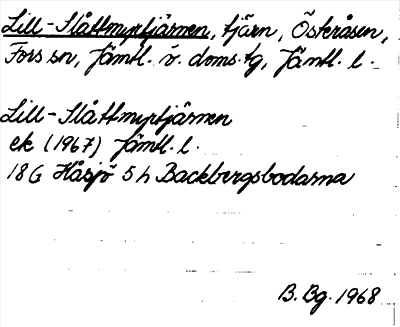 Lill-Slåttmyrtjärnen, tjärn, Österåsen,
Fors sn, Jämtl. v. doms.tg, Jämtl. l.
Lill-Slåttmyrtjärnen
ek (1967) Jämtl. l.
18G Håsjö 5h Backbergsbodarna
B. Bg. 1968